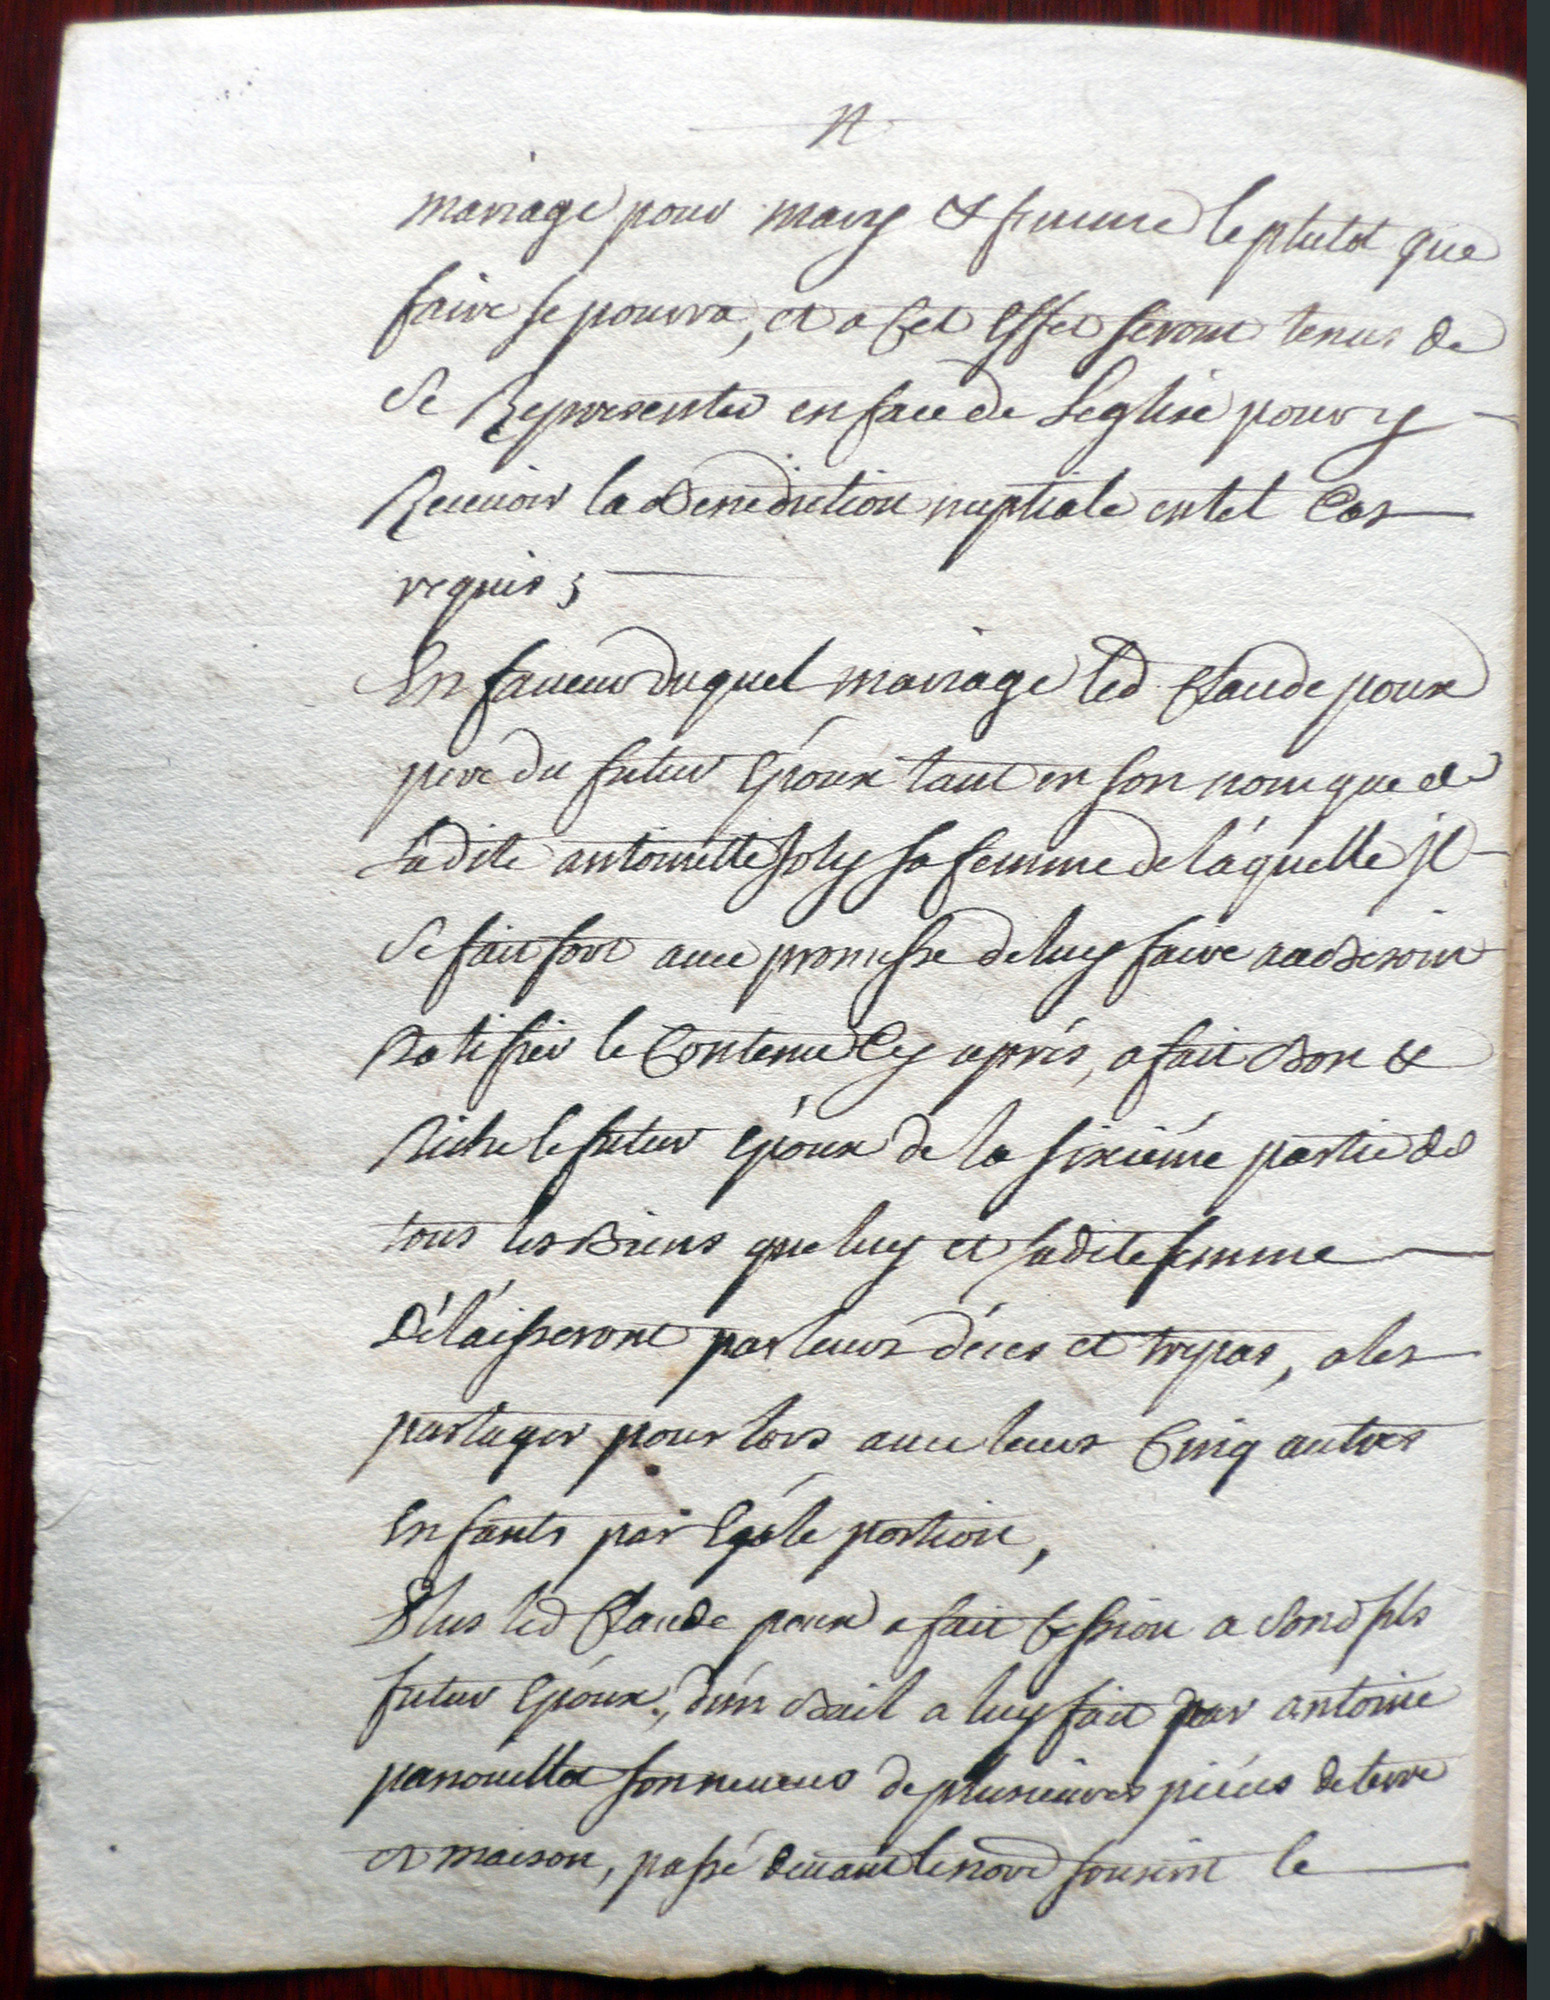 mariage pour mary & femme le plutot que
faire se pourra, et a cet Effet seront tenus de
se Representer en face de Leglise pour y
Recevoir la Benediction nuptiale en tel Cas
requis;
En faveur duquel mariage led Claude poux
pere du futur Epoux tant en son nom que de
ladite antoinette Joly sa femme de láquelle jl
se fait fort avec promesse de luy faire au Besoin
Ratifier le Contenu Cy aprés, a fait Bon &
Riche le futur Epoux de la sixiéme partie de
tous les Biens que luy et sadite femme
Déláisseront par leurs déces et trepas, a les
partager pour lors avec leurs Cinq autres
Enfants par Egale portion,
Plus led Claude poux a fait Cession a sond fils
futur Epoux, d'un Bail a luy fait par antoine
panouillot son neveu de plusieures piéces de terre
et maison, passé devant le nore soussnt le